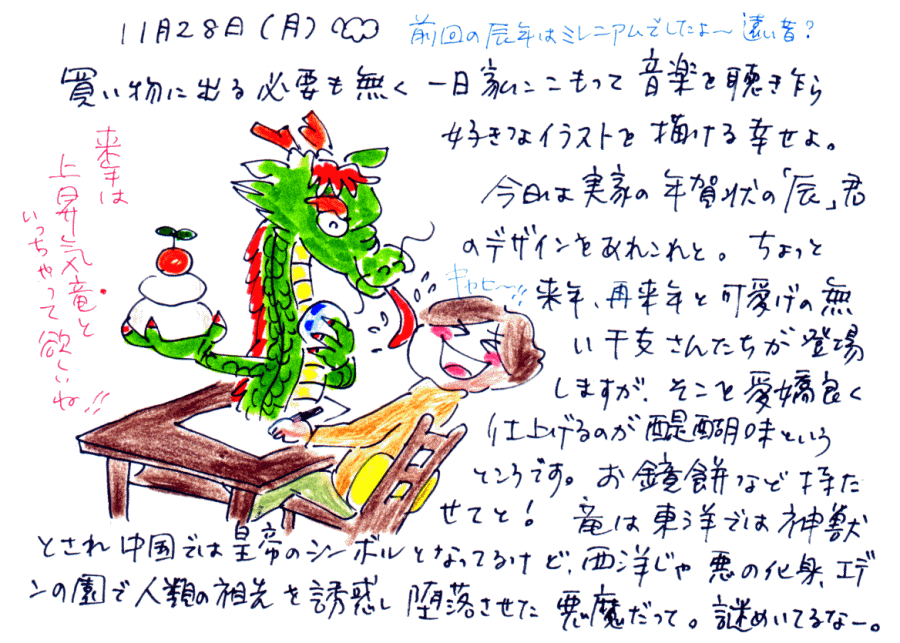 11月28日(月)
前回の辰年はミレニアムでしたよ～遠い昔?
買い物に出る必要も無く一日家にこもって音楽を聴き乍ら
好きなイラストを描ける幸せよ。
今日は実家の年賀状の「辰」君
のデザインをあれこれと。ちょっと
来年、再来年と可愛げの無
い干支さんたちが登場
しますが、そこを愛嬌良く
仕上げるのが醍醐味という
ところです。お鏡餅など持た
せてと! 竜は東洋では神獣
とされ中国では皇帝のシンボルとなってるけど、西洋じゃ悪の化身、エデ
ンの園で人類の祖先を誘惑し堕落させた悪魔だって。謎めいてるなー。
来年は
上昇気竜と
いっちゃって欲しいね!!
キャヒ～!!